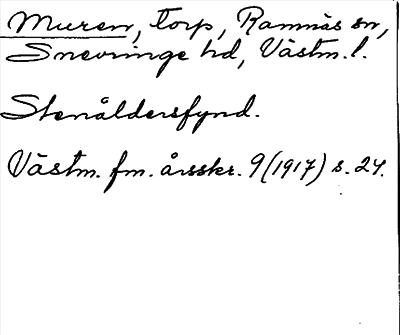 Muren, torp, Ramnäs sn,
Snevringe hd, Västm. l.
Stenåldersfynd.
Västm. fm. årsskr. 9 (1917) s. 24.